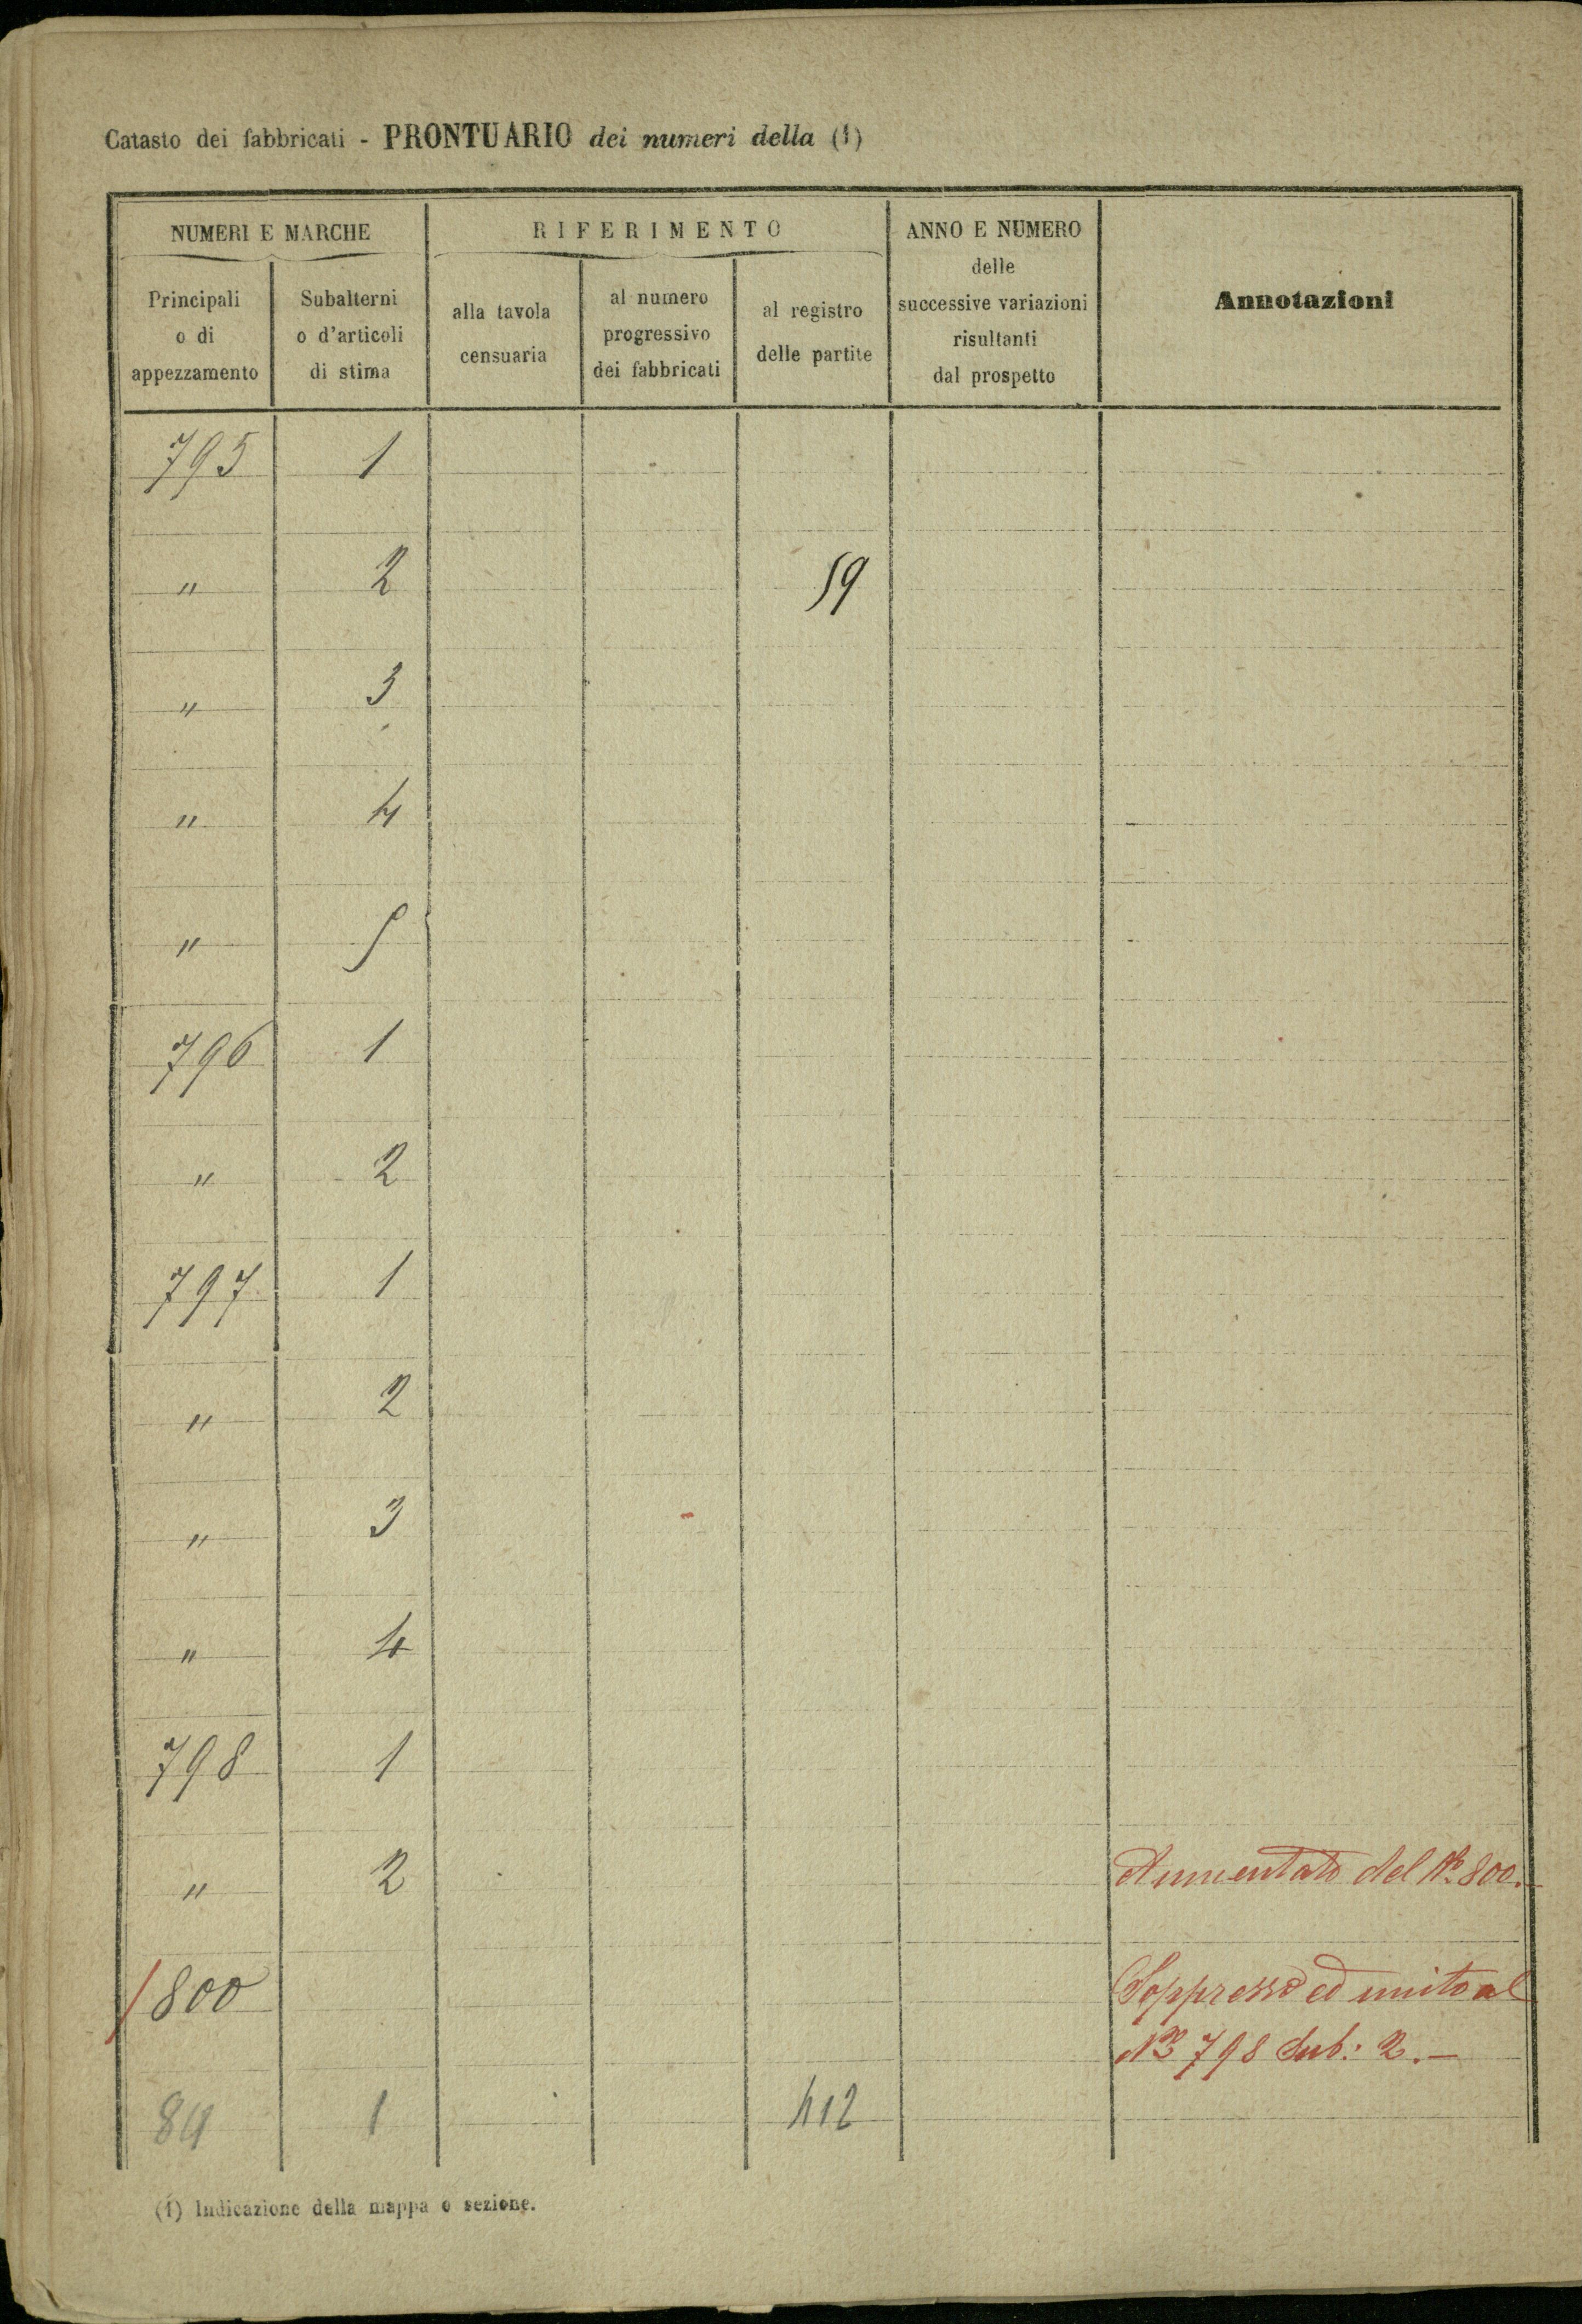 Catasto dei fabbricati - PRONTUARIO dei numeri della (1)
NUMERI E MARCHE
RIFERIMENTO
ANNO E NUMERO
delle
successive variazioni
risultanti
dal prospetto
Annotazioni
Principali
o di
appezzamento
Subalterni
o d'articoli
di stima
alla tavola
censuaria
al numero
progressivo
dei fabbricati
al registro
delle partite
795 1
" 2 59
" 3
" 4
" 5
796 1
" 2
797 1
" 2
" 3
" 4
798 1
" 2 Aumentato del No 800.-
/800 Soppresso ed unito al
No 798 Sub: 2.-
1 412
(1) Indicazione della mappa o sezione.